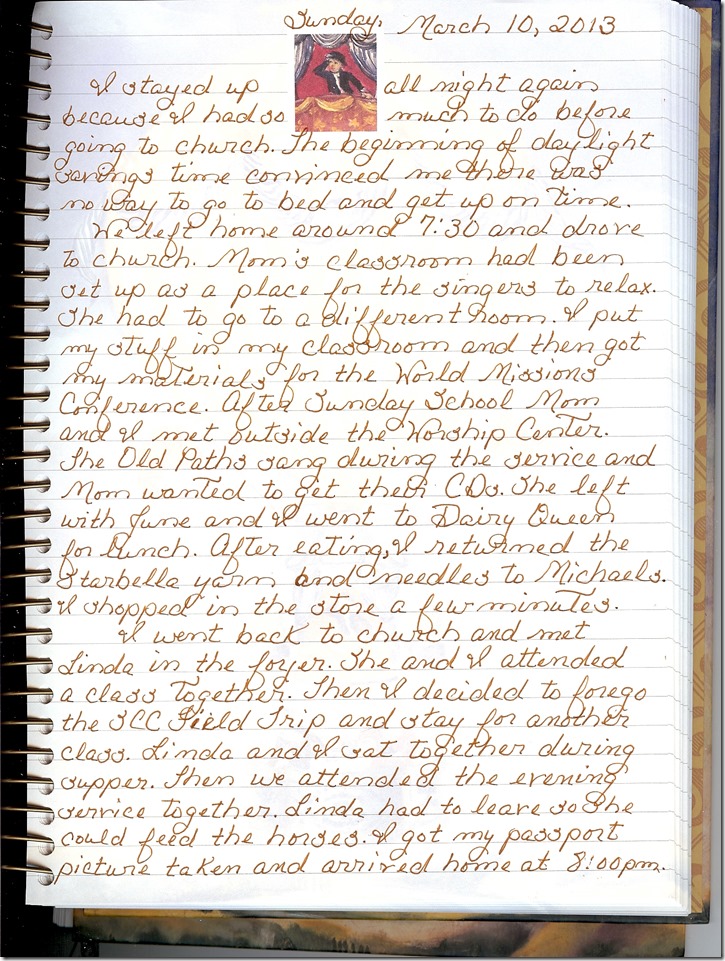 Sunday, March 10, 2013
I stayed up all night again
because I had so much to do before
going to church. The beginning of daylight
savings time convinced me there was
no way to go to bed and get up on time.
We left home around 7:30 and drove
to church. Mom's classroom had been
set up as a place for the singers to relax.
She had to go to a different room. I put
my stuff in my classroom and then got
my materials for the World Missions
Conference. After Sunday School Mom
and I met outside the Worship Center.
The Old Paths sang during the service and
Mom wanted to get their CDs. She left
with June and I went to Dairy Queen
for lunch. After eating, I returned the
Starbella yarn and needles to Michaels.
I shopped in the store a few minutes.
I went back to church and met
Linda in the foyer. She and I attended
a class together. Then I decided to forego
the SCC Field Trip and stay for another
class. Linda and I sat together during
supper. Then we attended the evening
service together. Linda had to leave so she
could feed the horses. I got my passport
picture taken and arrived home at 8:00pm.